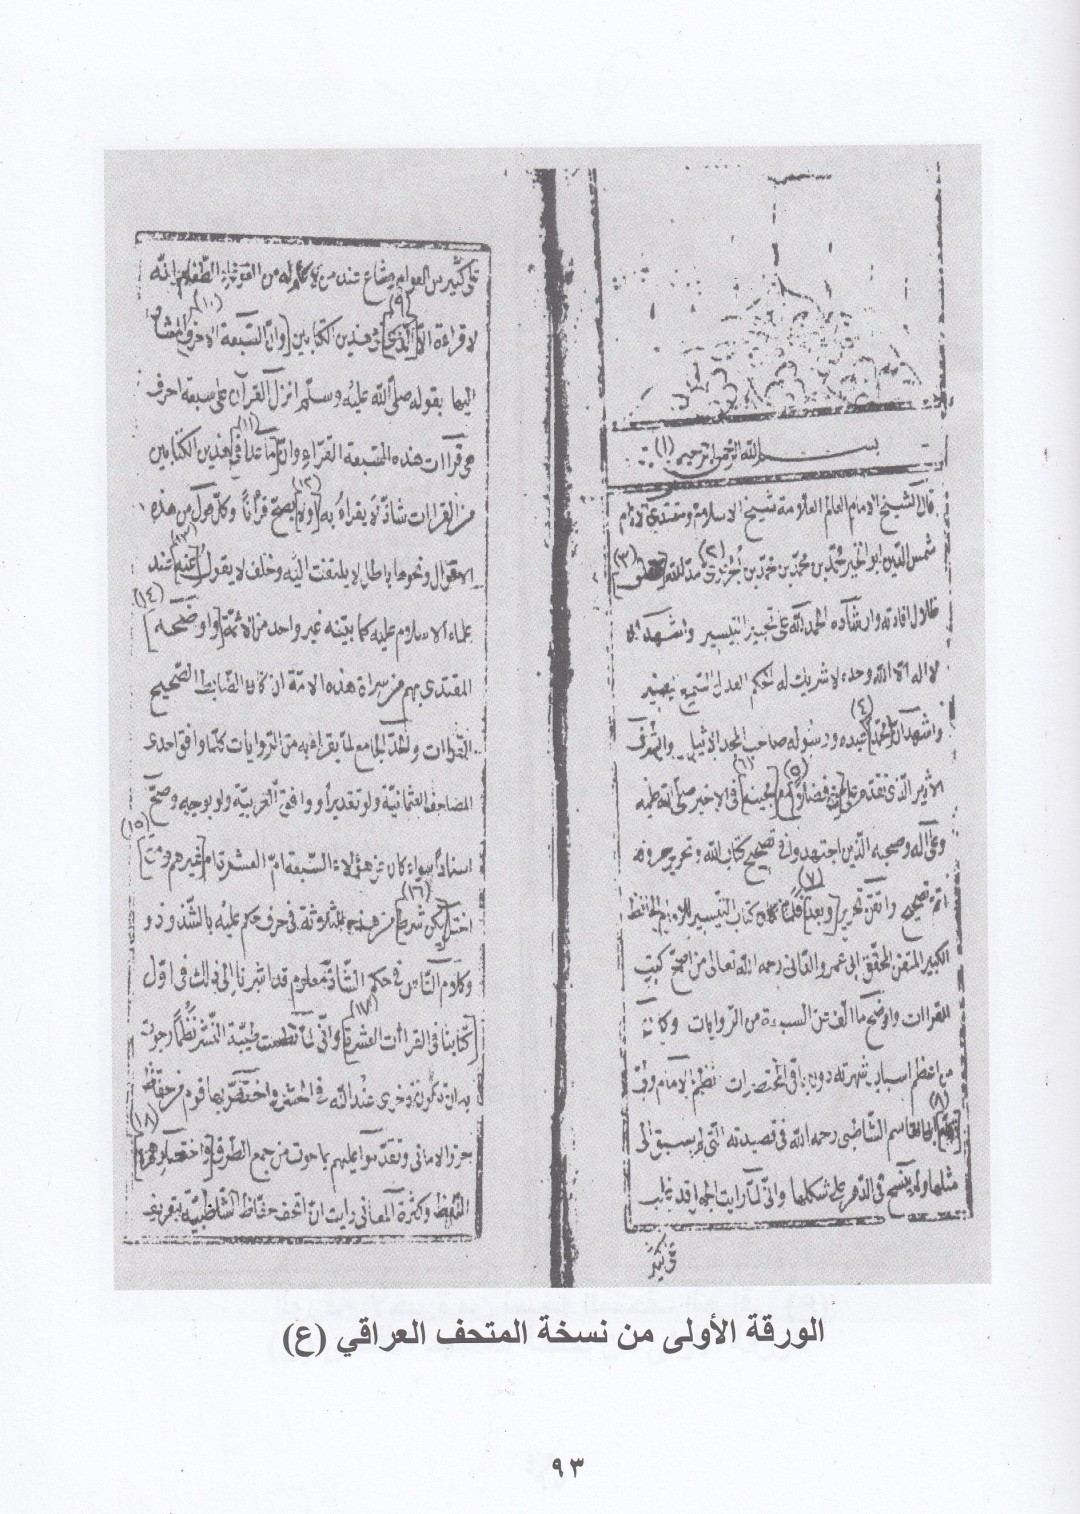 بسم الله الرحمن الرحيم (١)
قال الشيخ الامام العالم العلامة شيخ الاسلام ومقتدى الانام
شمس الدين ابو الخير محمد بن محمد بن محمد بن الجزري (٢) مد الله [ ] (٣)
ظلال افادته وارشاده الحمد لله على تحبير التيسير واشهد ان
لا اله الا الله وحده لا شريك له الحكم العدل السميع البصير
واشهد ان [محمدا] (٤) عبده ورسوله صاحب المجد الاثيل والشرف
الذي تقدم على (٥) [ ] (٦) في الاخير صلى الله عليه
وعلى اله وصحبه الذين اجتهدوا في تصحيح كتاب الله وتحرير حروفه
اتم تصحيح واتقن تحرير [وبعد] (٧) فلما كان كتاب التيسير للامام الحافظ
الكبير المتقن المحقق ابي عمرو الداني رحمه الله تعالى من اصح كتب
القراات واوضح ما الف عن السبعة من الروايات وكانه
من اعظم اسباب شهرته دون باقي المختصرات نظم الامام ولي
[ ] (٨) القاسم الشاطبي رحمه الله في قصيدته التي لم يسبق الى
مثلها ولم ينسج في الدهر على شكلها واني لما رايت الجهل قد غلب
على كثير
على كثير من العوام وشاع عند من لا علم له من الطغام انه
لا قراءة الا [الذي] (٩) في هذين الكتابين [وان السبعة الاحرف المشار (١٠)
اليها بقوله صلى الله عليه وسلم انزل القرآن على سبعة احرف
هي قراات هذه السبعة القراء وان [ما عدا في (١١) هذين الكتابين
من القراات شاذ لا يقرأ به [ولا (١٢) يصح قرآنا وكل قول من هذه
الاقوال ونحوها باطل لا يلتفت اليه وخلف لا يقول [عليه (١٣) عند
علماء الاسلام عليه كما بينه غير واحد من ائمة [واوضحه] (١٤)
المقتدى بهم من سراة هذه الامة ان كان الضابط الصحيح
القراات والحد الجامع لما يقرأ به من الروايات كلما وافق احدى
المصاحف العثمانية ولو تقديرا ووافق العربية ولو بوجه وصح
اسنادا سواء كان عن هؤلاء السبعة ام العشرة ام [غيرهم ومتى] (١٥)
اختل [ركن شرط] (١٦) من هذه الثلاثة في حرف حكم عليه بالشذوذ
وكلام الناس في حكم الشاذ معلوم قد اشرنا الى ذلك في اول
[كتابنا في القراات العشرة] (١٧) واني لما نظمت طيبة النشر نظما رجوت
به ان تكون ذخرى عند الله في الحشر واختصر بها قوم من حفاظ
حرز الاماني وتقدموا عليهم بما حوت من جمع الطرق [ ] (١٨)
اللفظ وكثرة المعاني رايت ان اتحف حفاظ الشاطبية بتعريف
الورقة الأولى من نسخة المتحف العراقي (ع)
٩٣